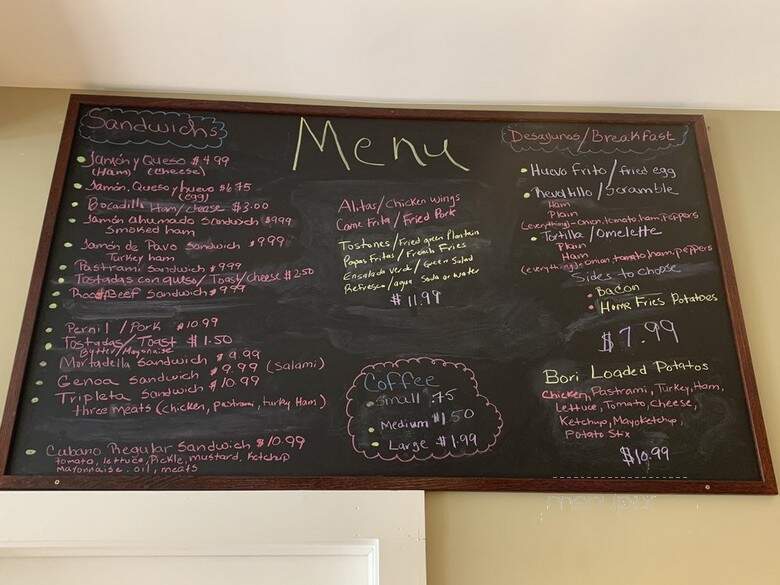 Menu
Sandwichs
Jamón y Queso $4.99
(Ham) (cheese)
Jamón, Queso y huevo $6.75
(egg)
Bocadillo Ham/cheese $3.00
Jamón ahumado Sandwich $999
Smoked ham
Jamón de Pavo Sandwich $999
Turkey ham
Pastrami Sandwich $999
Tostadas con queso/Toast/cheese $2.50
Roast Beef Sandwich $999
Pernil / Pork $10.99
Tostadas/Toast $1.50
Butter/Mayonaise
Mortadella Sandwich $9.99
Genoa Sandwich $9.99 (Salami)
Tripleta Sandwich $10.99
three meats (chicken, pastrami, turkey Ham)
Cubano Regular Sandwich $10.99
tomato, lettuce, Pickle, mustard, Ketchup
mayonnaise. oil, meats
Alitas/Chicken Wings
Carne Frita/Fried Pork
Tostones/Fried green Plantain
Papas Fritas/French Fries
Ensalada Verde/Green Salad
Refresco/agua Soda or water
$11.99
Coffee
Small .75
Medium $1.50
Large $1.99
Desayunos/Breakfast
Huevo Frito/fried egg
Revoltillo/Scramble
Ham
Plain
(everything)-Onion, tomato, ham, Peppers
Tortilla/Omelette
Plain
Ham
(everything)-Onion, tomato, ham, peppers
Sides to choose
Bacon
Home Fries Potatoes
$7.99
Bori Loaded Potatos
Chicken, Pastrami, Turkey, Ham,
Lettuce, Tomato, Cheese,
Ketchup, Mayoketchup,
Potato Stix
$10.99